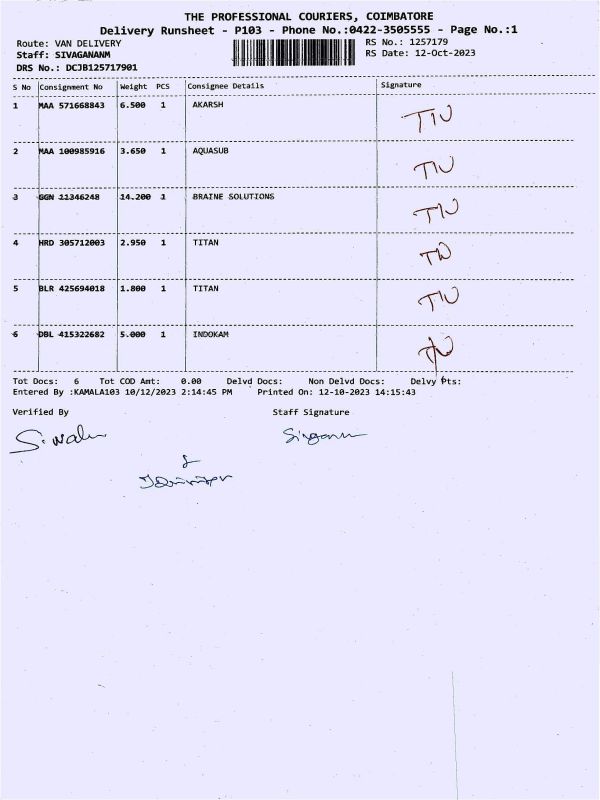 THE PROFESSIONAL COURIERS, COIMBATORE
Delivery Runsheet - P103 - Phone No.:0422-3505555 - Page No.:1
Route: VAN DELIVERY RS No.: 1257179
Staff: SIVAGANANM RS Date: 12-Oct-2023
DRS No.: DCJB125717901
S No Consignment No Weight PCS Consignee Details Signature
1 MAA 571668843 6.500 1 AKARSH
2 MAA 100985916 3.650 1 AQUASUB
3 GGN 11346248 14.200 1 BRAINE SOLUTIONS
4 HRD 305712003 2.950 1 TITAN
5 BLR 425694018 1.800 1 TITAN
6 DBL 415322682 5.000 1 INDOKAM
Tot Docs: 6 Tot COD Amt: 0.00 Delvd Docs: Non Delvd Docs: Delvy Pts:
Entered By :KAMALA103 10/12/2023 2:14:45 PM Printed On: 12-10-2023 14:15:43
Verified By Staff Signature